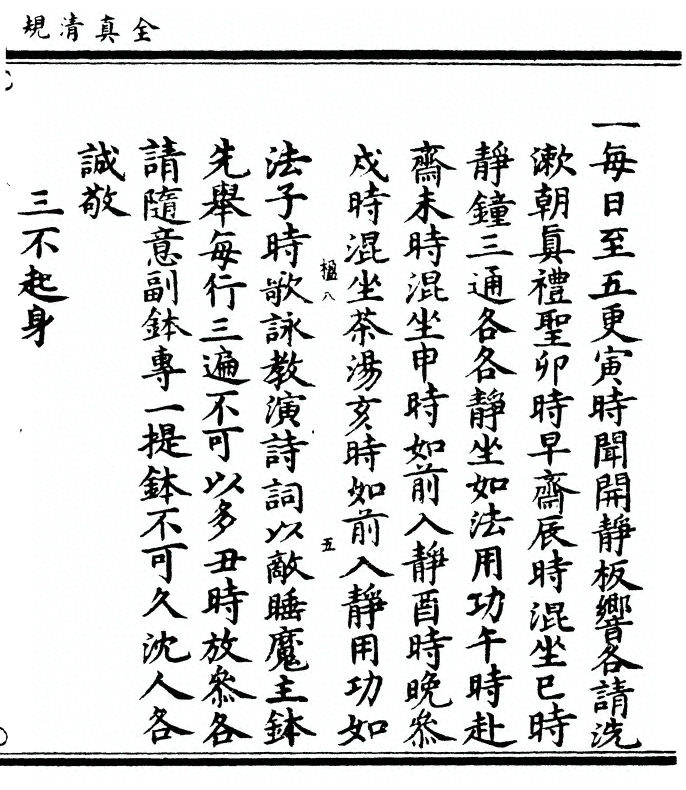 全真清規
一每日至五更寅時聞開靜板響各請洗
漱朝眞禮聖卯時早齋辰時混坐巳時
靜鐘三通各各靜坐如法用功午時赴
齋未時混坐申時如前入靜酉時晚參
戍時混坐茶湯亥時如前入靜用功如
楹八
五
法子時歌詠教演詩詞以敵睡魔主鉢
先舉每行三遍不可以多丑時放參各
請隨意副鉢專一提鉢不可久沈人各
誠敬
三不起身